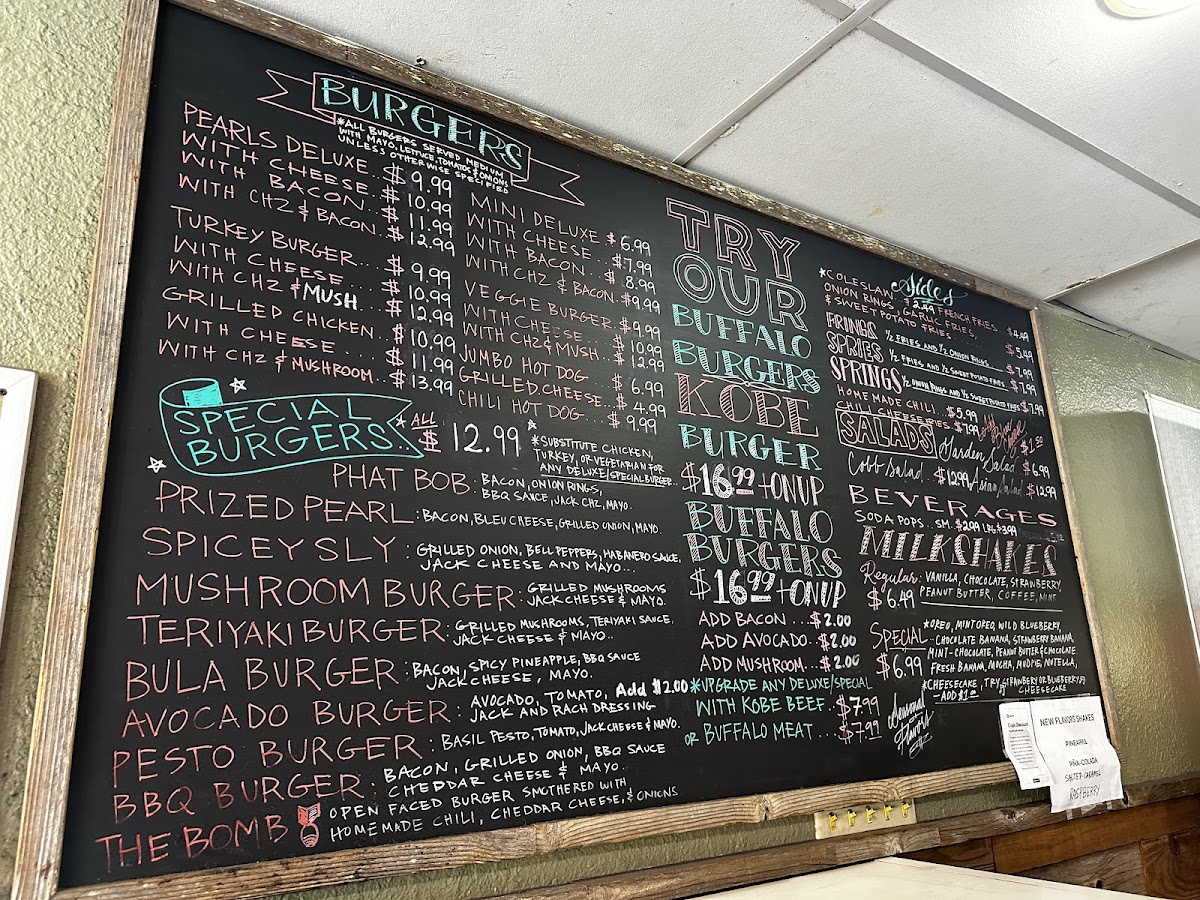 BURGERS
*ALL BURGERS SERVED MEDIUM
WITH MAYO, LETTUCE, TOMATOS & ONIONS
UNLESS OTHERWISE SPECIFIED
PEARLS DELUXE..$9.99
WITH CHEESE...$10.99
WITH BACON...$11.99
WITH CHZ & BACON..$12.99
TURKEY BURGER...$9.99
WITH CHEESE...$10.99
WITH CHZ & MUSH...$12.99
GRILLED CHICKEN..$10.99
WITH CHEESE....$11.99
WITH CHZ & MUSHROOM..$13.99
MINI DELUXE..$6.99
WITH CHEESE...$7.99
WITH BACON...$8.99
WITH CHZ & BACON.$9.99
VEGGIE BURGER.$9.99
WITH CHEESE...$10.99
WITH CHZ & MUSH..$12.99
JUMBO HOT DOG...$6.99
GRILLED.CHEESE...$4.99
CHILI HOT DOG...$9.99
SPECIAL
BURGERS..
* ALL
$12.99
*SUBSTITUTE CHICKEN,
TURKEY, OR VEGETARIAN FOR
ANY DELUXE/SPECIAL BURGER..
PHAT BOB: BACON, ONION RINGS,
BBQ SAUCE, JACK CHZ, MAYO.
PRIZED PEARL: BACON, BLEU CHEESE, GRILLED ONION, MAYO.
SPICEY SLY: GRILLED ONION, BELL PEPPERS, HABANERO SAUCE,
JACK CHEESE AND MAYO...
MUSHROOM BURGER: GRILLED MUSHROOMS
JACK CHEESE & MAYO.
TERIYAKI BURGER: GRILLED MUSHROOMS, TERIYAKI SAUCE,
JACK CHEESE & MAYO..
BULA BURGER: BACON, SPICY PINEAPPLE, BBQ SAUCE
JACK CHEESE, MAYO.
AVOCADO BURGER: AVOCADO, TOMATO, Add $2.00
JACK AND RACH DRESSING
PESTO BURGER: BASIL PESTO, TOMATO, JACK CHEESE & MAYO.
BBQ BURGER: BACON, GRILLED ONION, BBQ SAUCE
CHEDDAR CHEESE & MAYO..
THE BOMB OPEN FACED BURGER SMOTHERED WITH
HOMEMADE CHILI, CHEDDAR CHEESE, & ONIONS
TRY
OUR
BUFFALO
BURGERS
KOBE
BURGER
$16.99 + ON UP
BUFFALO
BURGERS
$16.99 + ON UP
ADD BACON...$2.00
ADD AVOCADO..$2.00
ADD MUSHROOM...$2.00
*UPGRADE ANY DELUXE/SPECIAL
WITH KOBE BEEF.$7.99
OR BUFFALO MEAT...$7.99
Sides
*COLESLAW..$2.99 FRENCH FRIES..$4.49
ONION RINGS, GARLIC FRIES,
& SWEET POTATO FRIES...$5.49
FRINGS ½ FRIES AND ½ ONION RINGS..$7.99
SPRIES ½ FRIES AND ½ SWEET POTATO FRIES.$7.99
SPRINGS ½ ONION RINGS AND ½ SWEET POTATO FRIES $7.99
HOME MADE CHILI..$5.99
CHILI CHEESE FRIES $7.99
$1.50
SALADS Garden Salad...$6.99
Cobb Salad $12.99 Asian Salad $12.99
BEVERAGES
SODA POPS.. SM. $2.99 LRG $3.99
MILKSHAKES
Regular: VANILLA, CHOCOLATE, STRAWBERRY
$6.49 PEANUT BUTTER, COFFEE, MINT
Special $6.99
*OREO, MINT OREO, WILD BLUEBERRY,
CHOCOLATE BANANA, STRAWBERRY BANANA,
MINT-CHOCOLATE, PEANUT BUTTER & CHOCOLATE
FRESH BANANA, MOCHA, MUDPIE, NUTELLA,
*CHEESECAKE, TRY STRAWBERY OR BLUEBERRY
CHEESECAKE
-ADD $1.00
Seasonal
Flavors
NEW FLAVORS SHAKES
PINEAPPLE
PIÑA-COLADA
SALTED-CARAMEL
RASPBERRY
Cash Discount